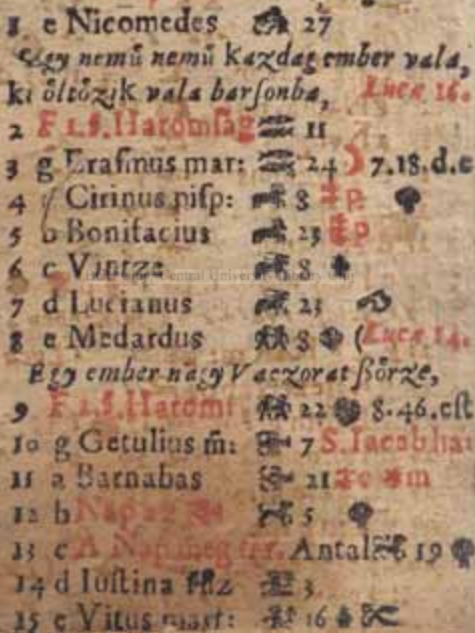 1 e Nicomedes 27
Egy nemű nemű kazdag ember vala,
ki öltözik vala barſonba, Lucæ 16.
2 F 1.S. Haromſag 11
3 g Eraſmus mar: 24 7.18.d.e
4 Cirinus piſp: 8 p
5 b Bonifacius 23 p
6 c Vintze 8
7 d Lucianus 23
8 e Medardus 8 ( Lucæ 14.
Egy ember nagy Vaczorat ßörze,
9 F 2.S. Haromſ 22 8.46.eſt
10 g Getulius m̄: 7 S. Iacab ha:
11 a Barnabas 21 c m
12 b Nap 5
13 c A Nap meg Antal 19
14 d Iuſtina 3
15 e Vitus mart: 16